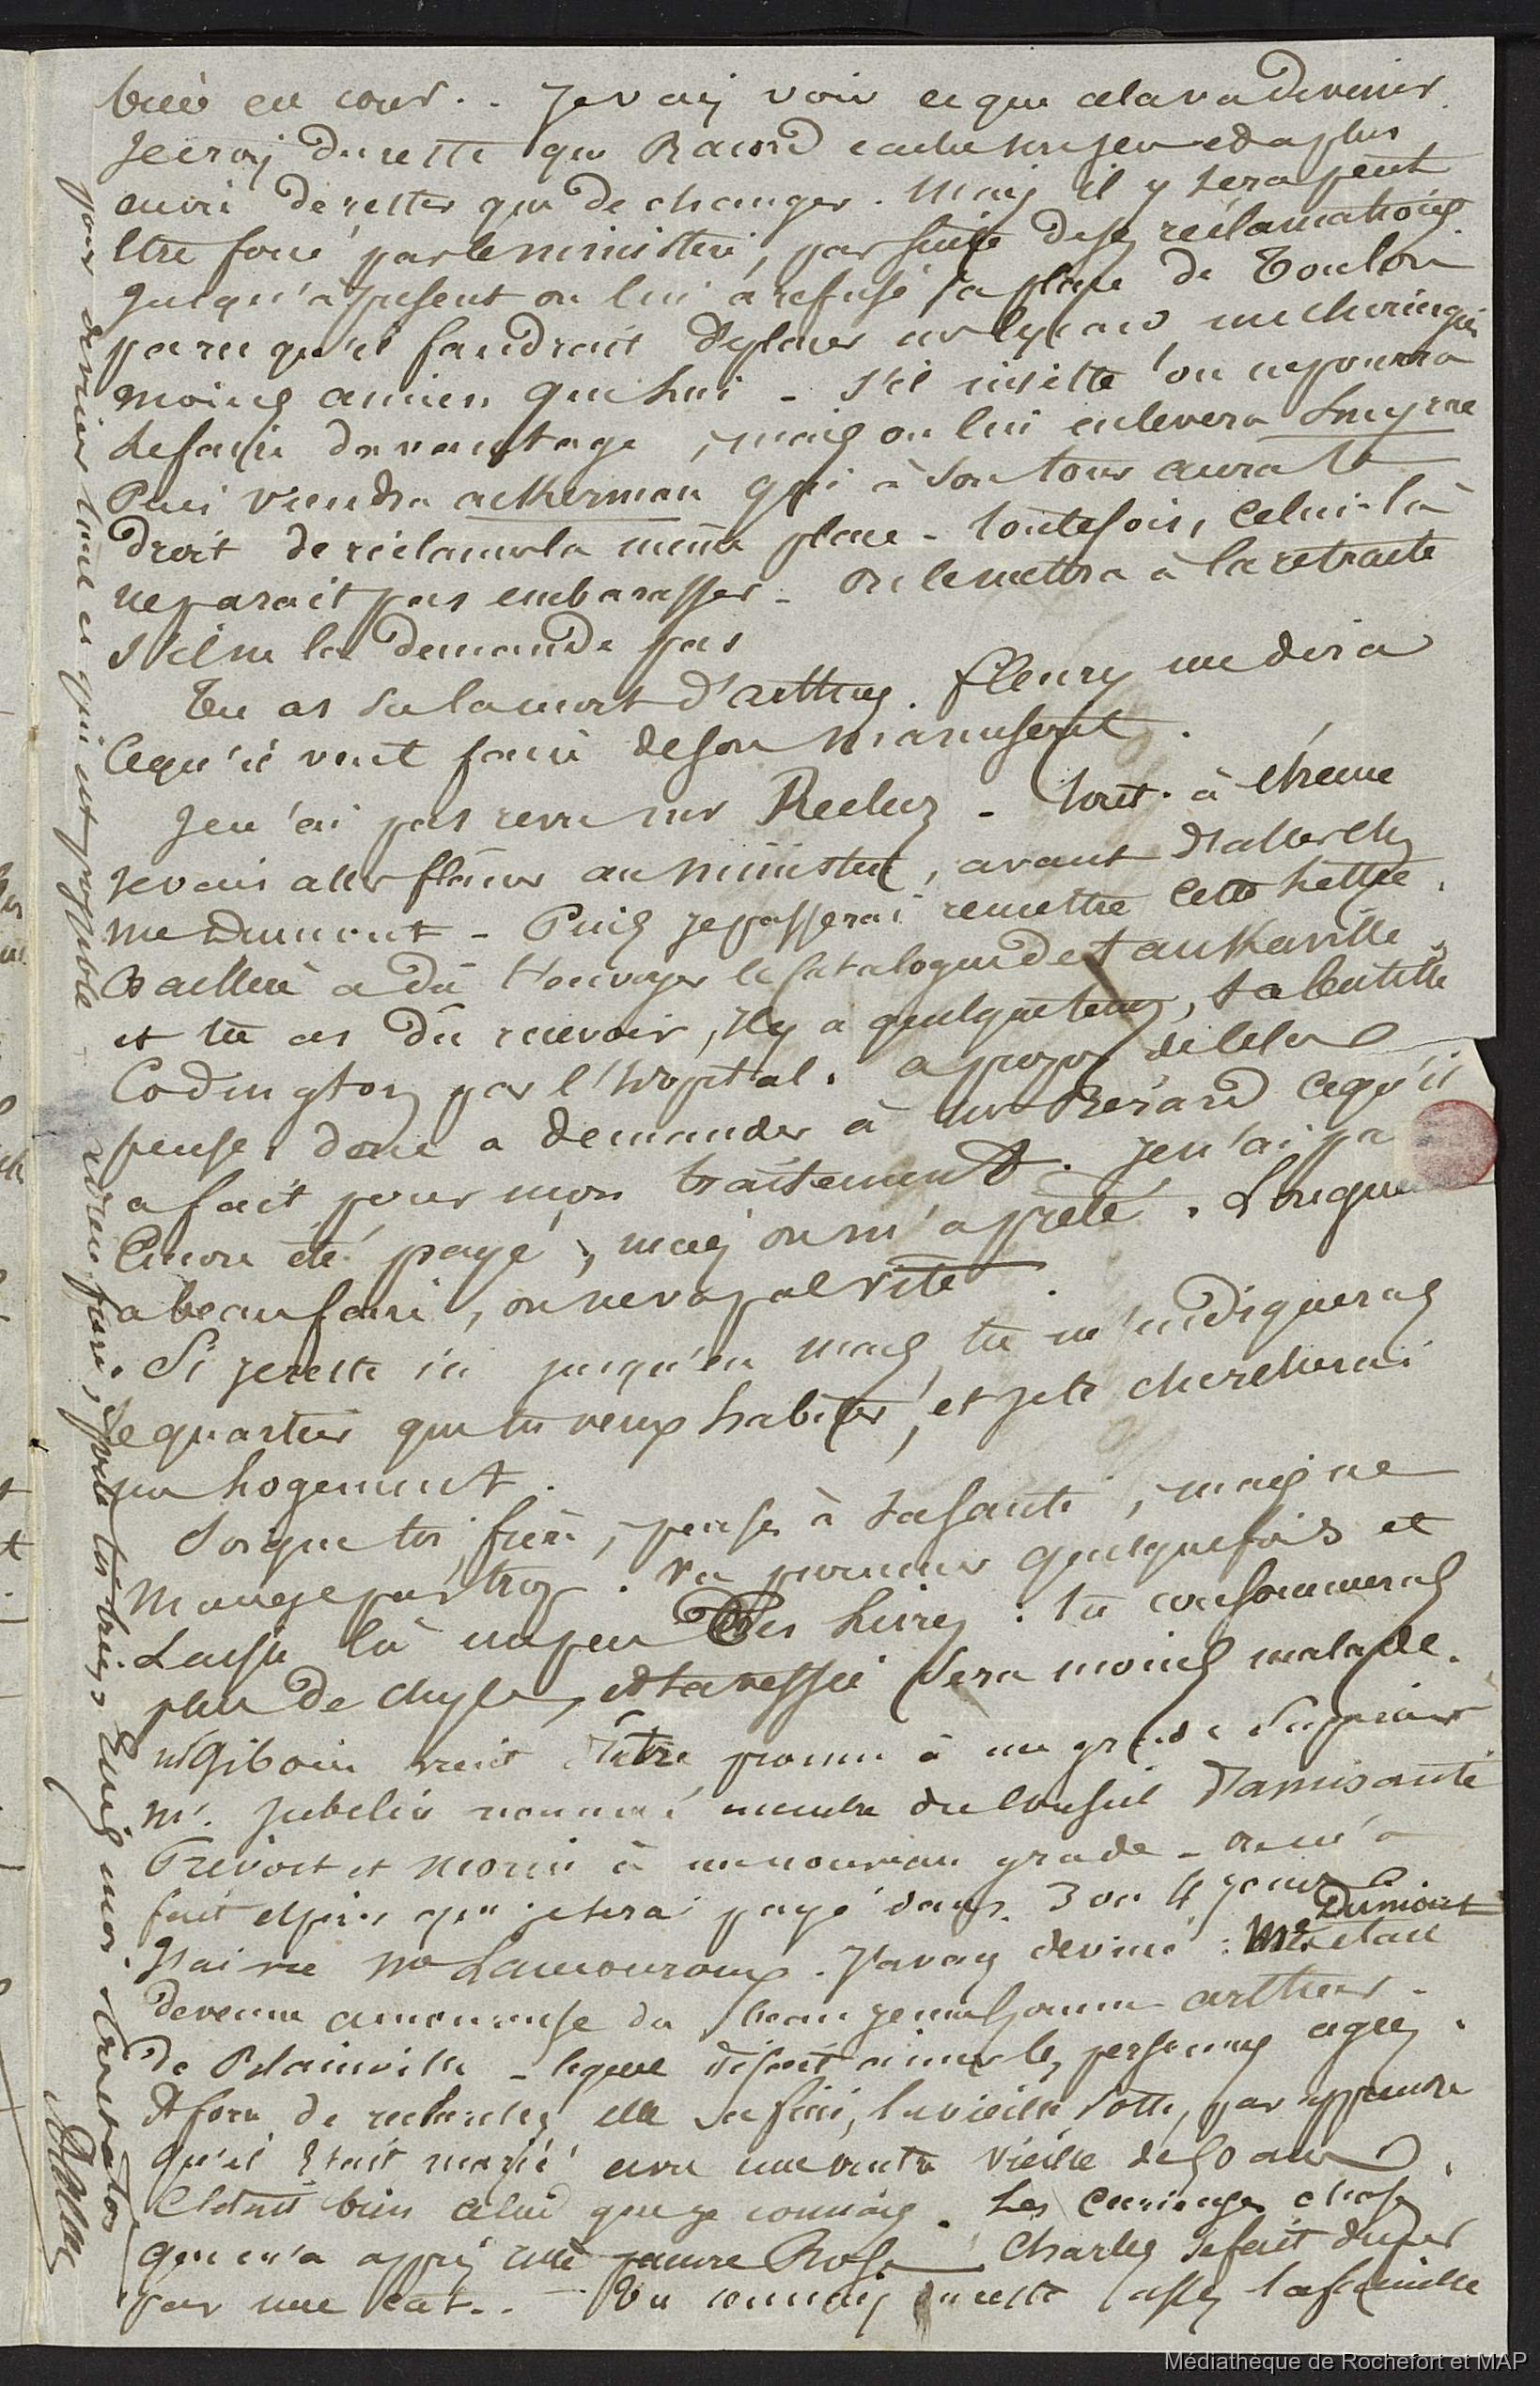 bien en cour.. Je vais voir ce que cela va devenir.
Je crois du reste que Racord cache son jeu et a plus
envie de rester que de changer. Mais il y sera peut
être forcé par le ministère, par suite de ses réclamations.
Jusqu'à présent on lui a refusé la place de Toulon
parce qu'il faudrait déplacer un chirurgien
moins ancien que lui - s'il insiste on ne pourra
le faire davantage, mais on lui enlevera Smyrne
Puis viendra ackerman qui à son tour aura le
droit de réclamer la même place - toutefois, celui-là
ne parait pas embarasser - on le mettra à la retraite
s'il ne la demande pas
Tu as su la mort d'arthus. fleury me dira
ce qu'il veut faire de son manuscrit.
Je n'ai pas revu mr Recluz - tout à l'heure
je vais aller flâner au ministère, avant d'aller chez
me Dumont - Puis je passerai remettre cette lettre.
Baillère a dû t'envoyer le catalogue de tankarville
et tu as dû recevoir, il y a quelque temps, ta bouteille
Codington par l'hopital. a propos de cela
pense donc a demander à mr Bérard ce qu'il
a fait pour mon traitement. Je n'ai pa
encore été payé, mais on m'a prêté. Longue
a beau faire, on ne va pas vite.
Si je reste ici jusqu'en mars, tu m'indiqueras
le quartier que tu veux habiter, et je te chercherai
un logement.
Soigne toi, frère, pense à ta santé, mais ne
mange pas trop. va promener quelquefois et
laisse là un peu tes livres : tu consommeras
plus de chyle, et ta vessie sera moins malade.
mr Giboin vient d'être promu à un grade supérieur
mr. Jubelin nommé membre du Conseil d'amirauté
Prévost et morin à un nouveau grade - on m'a
fait espérer que je serai payé dans 3 ou 4 jours
J'ai vu me Lamouroux. J'avais deviné : me Dumont etait
devenue amoureuse du beau jeune homme arthur
de Blainville - lequel disait aimer les personnes agées.
A force de recherches elle a fini, la vieille sotte, par apprendre
qu'il était marié avec une autre vieille de 50 ans.
C'était bien celui que je connais. Les curieuses choses
que m'a appris cette pauvre Rose. Charles se fait duper
par une cat... Tu connais du reste assez la famille
pour deviner tout ce qui est possible. adieu frère, porte toi bien. Suis mon